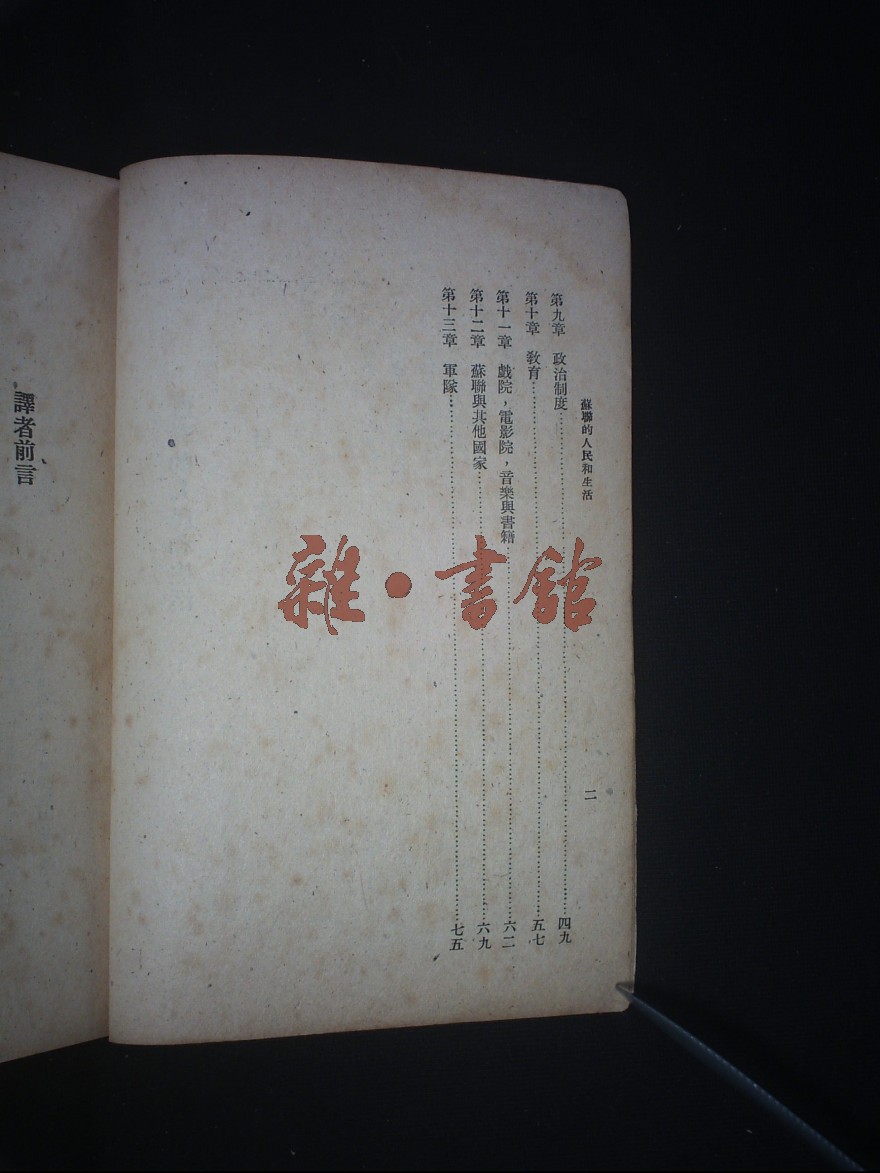 蘇聯的人民和生活
二
第九章 政治制度……四九
第十章 教育……五七
第十一章 戲院，電影院，音樂與書籍……六二
第十二章 蘇聯與其他國家……六九
第十三章 軍隊……七五
譯者前言
雜·書館